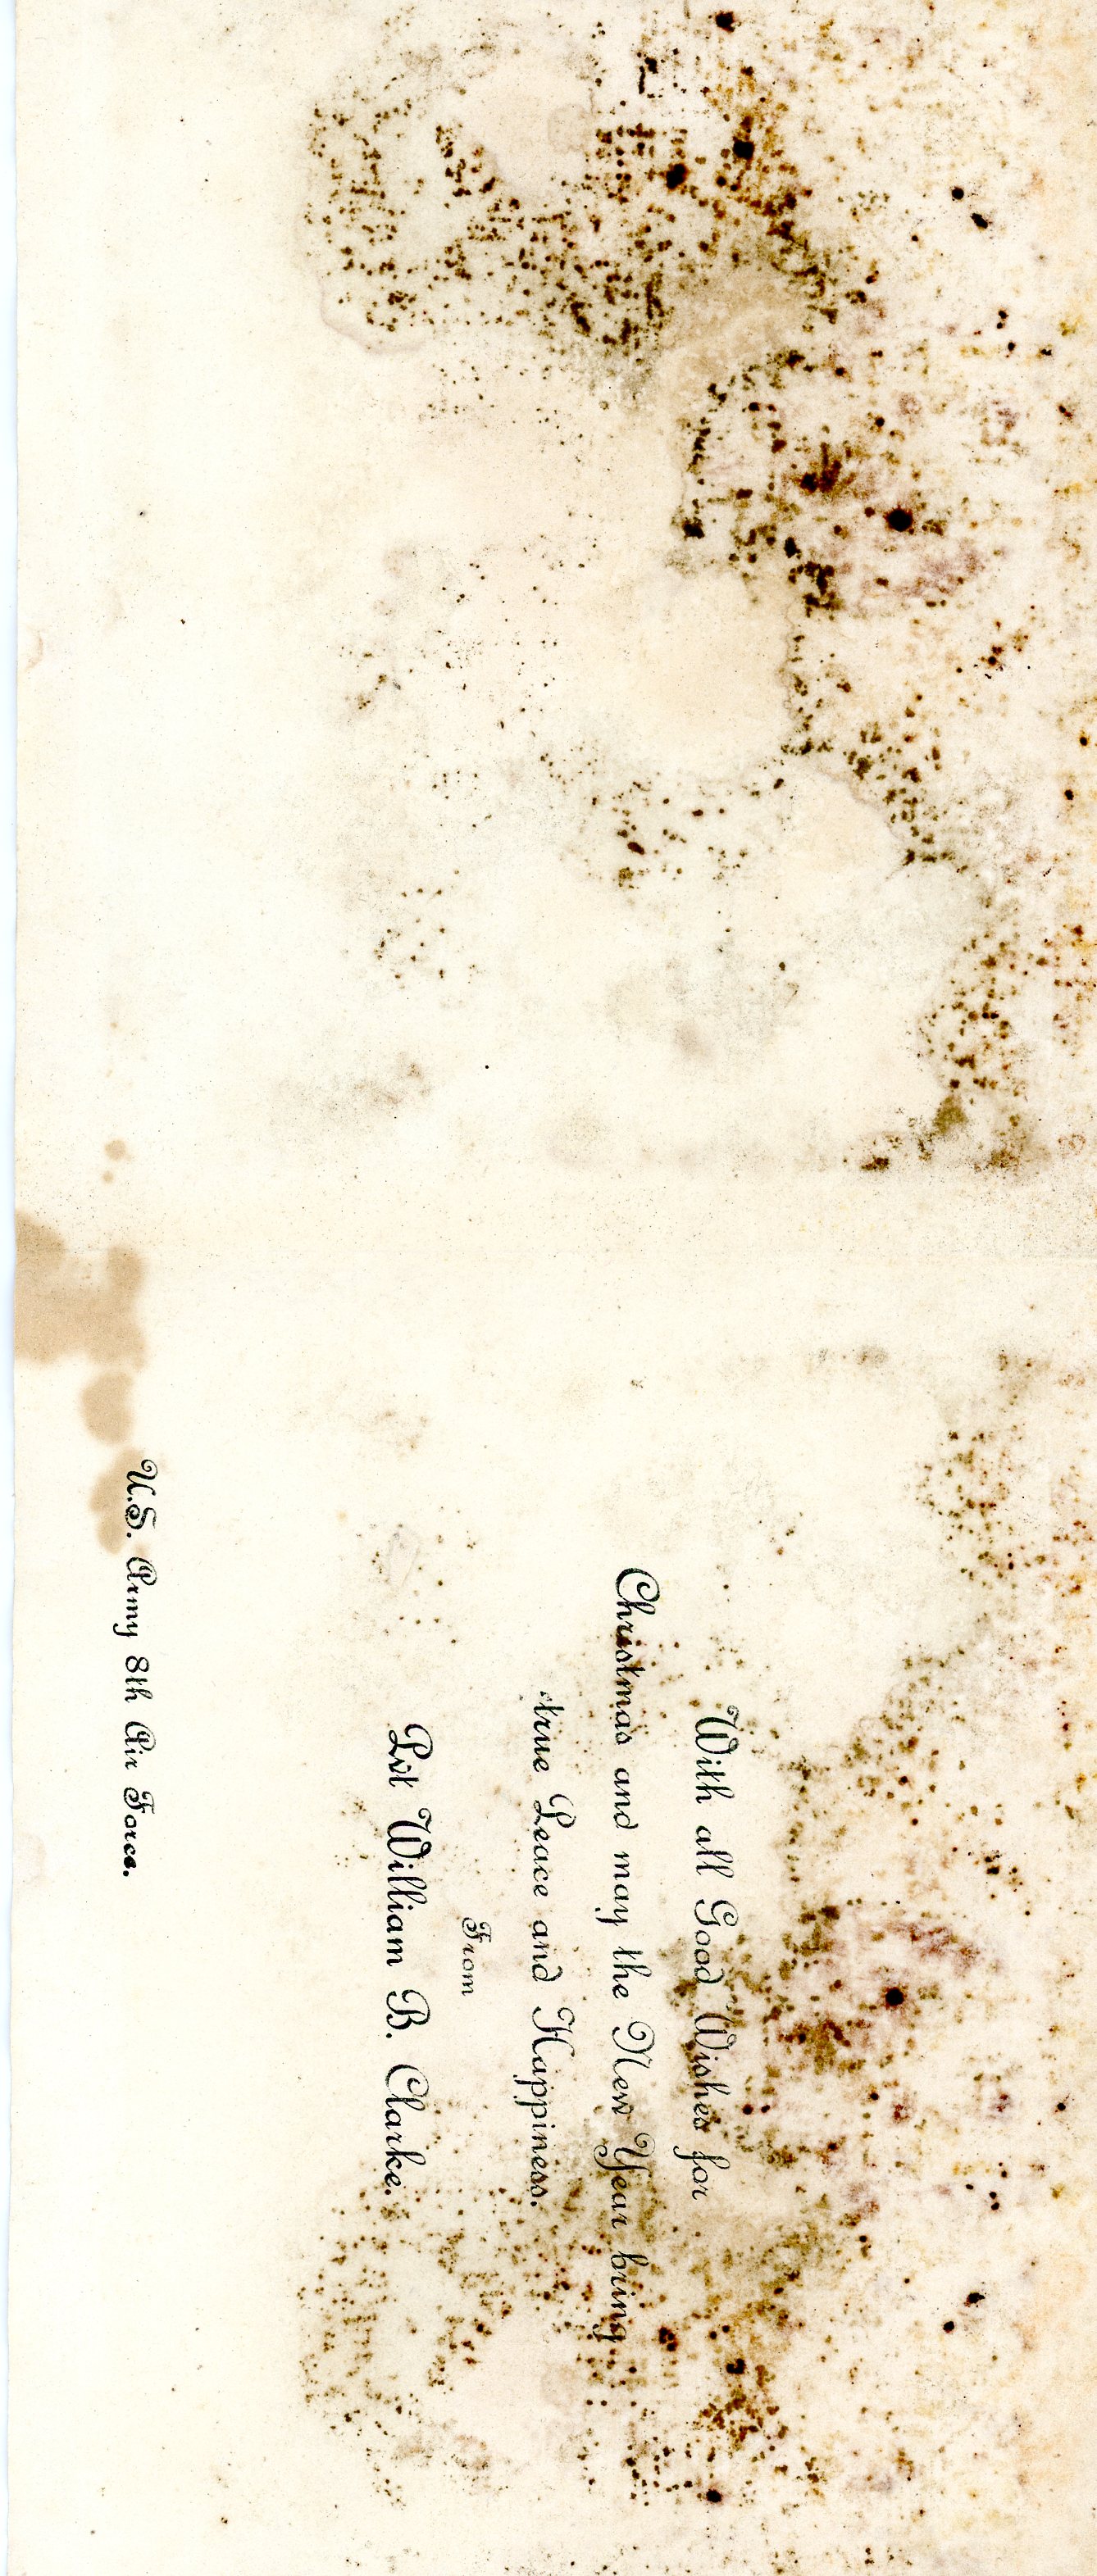 With all Good Wishes for
Christmas and may the New Year bring
true Peace and Happiness.
From
Pvt William B. Clarke.
U.S. Army 8th Air Force.